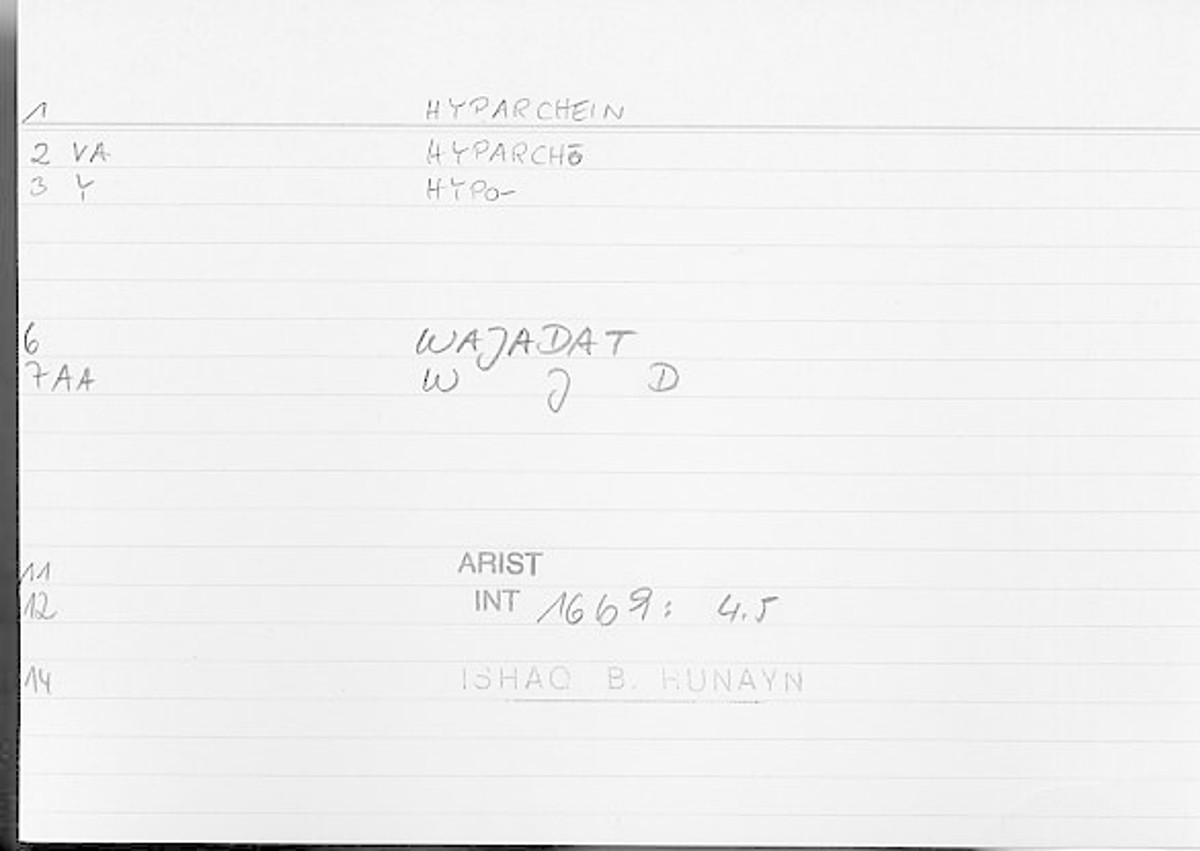 1 HYPARCHEIN
2 VA HYPARCHō
3 Y HYPo-
6 WAJADAT
7 AA W J D
11 ARIST
12 INT 1669: 4.5
14 ISHAQ B. HUNAYN